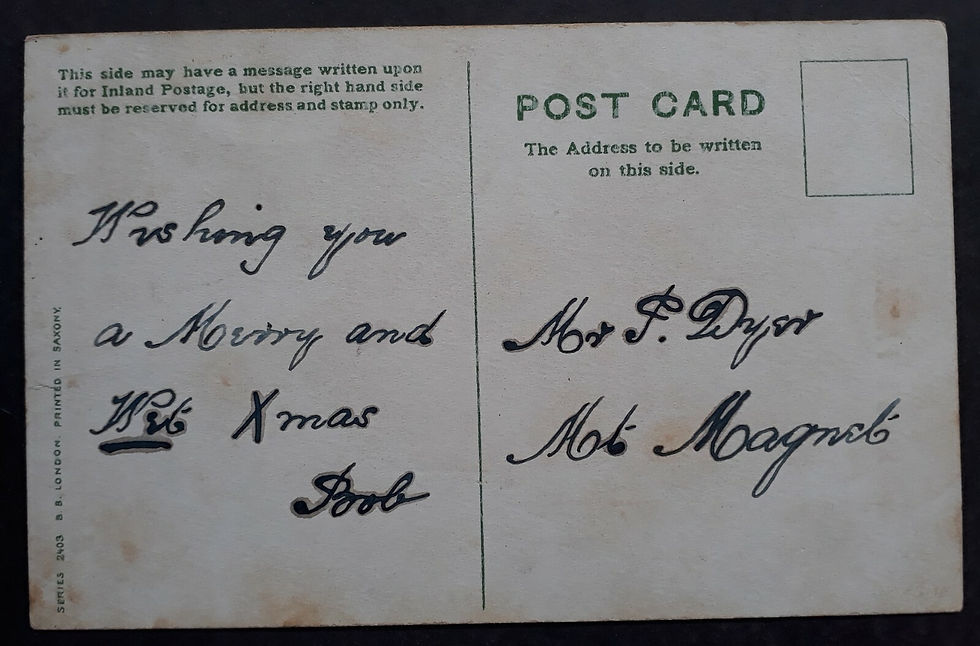 This side may have a message written upon
it for Inland Postage, but the right hand side
must be reserved for address and stamp only.
Wishing you
a Merry and
Wet Xmas
Bob
SERIES 2403 B. B. LONDON. PRINTED IN SAXONY.
POST CARD
The Address to be written
on this side.
Mr P. Dyer
Mt Magnet